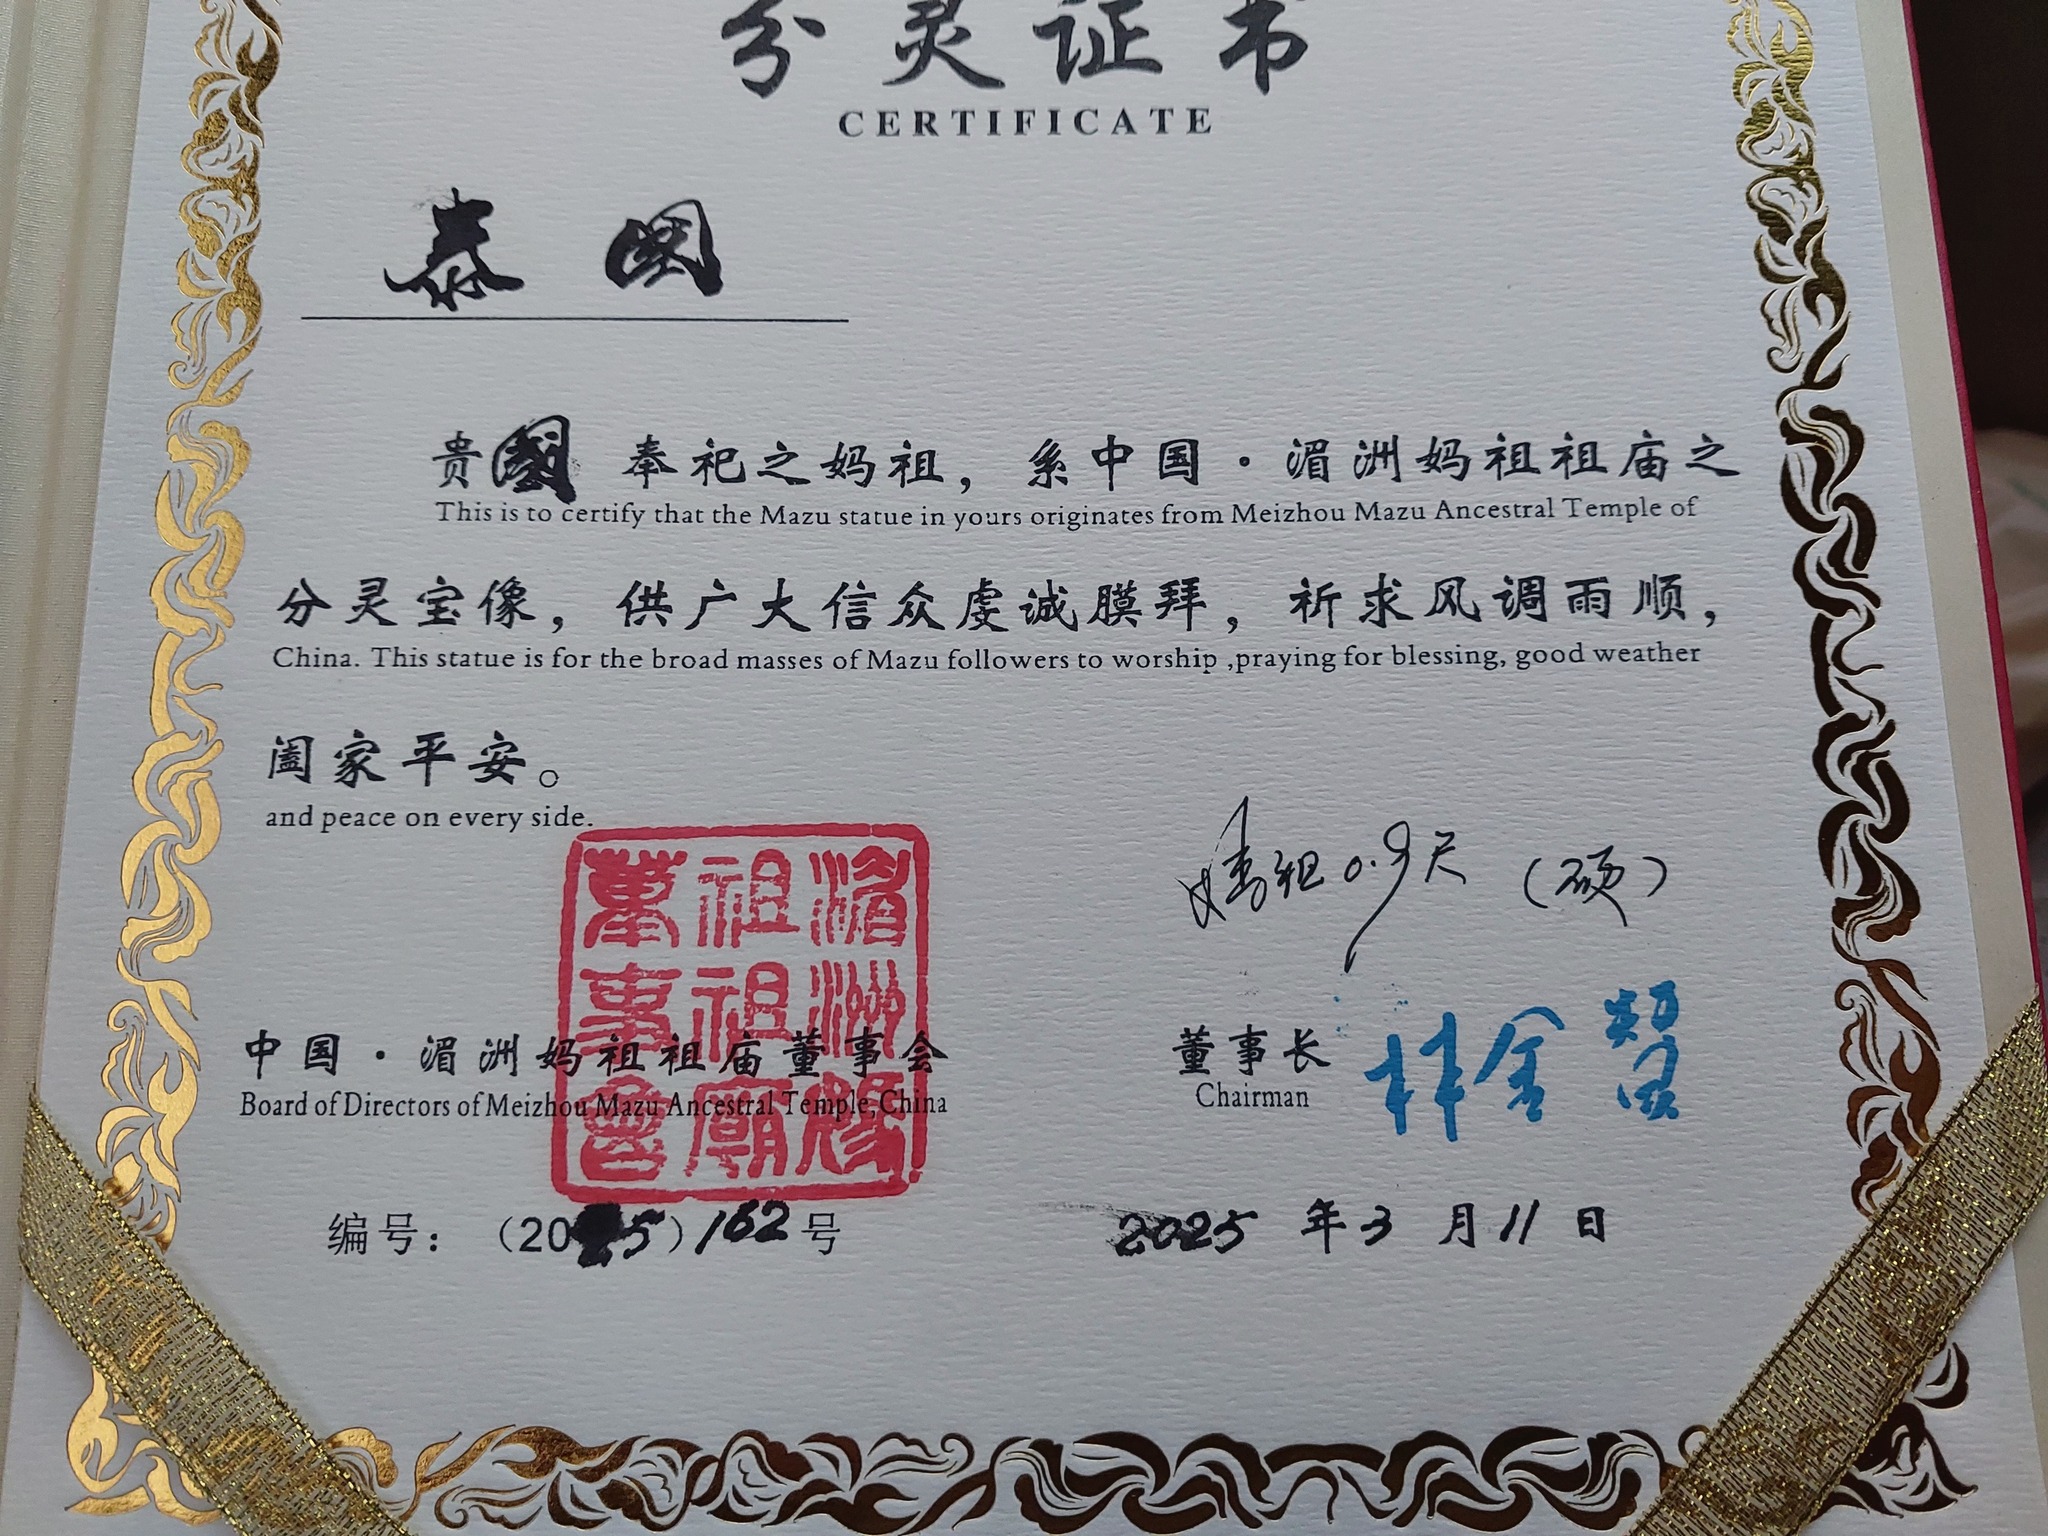 分灵证书
CERTIFICATE
泰国
贵國 奉祀之妈祖，系中国·湄洲妈祖祖庙之
This is to certify that the Mazu statue in yours originates from Meizhou Mazu Ancestral Temple of
分灵宝像，供广大信众虔诚膜拜，祈求风调雨顺，
China. This statue is for the broad masses of Mazu followers to worship ,praying for blessing, good weather
阖家平安。
and peace on every side.
妈祖0.9尺（硕）
湄洲媽祖祖廟董事會
中国·湄洲妈祖祖庙董事会
Board of Directors of Meizhou Mazu Ancestral Temple,China
董事长 林金赞
Chairman
编号：（2025）162号
2025年3月11日